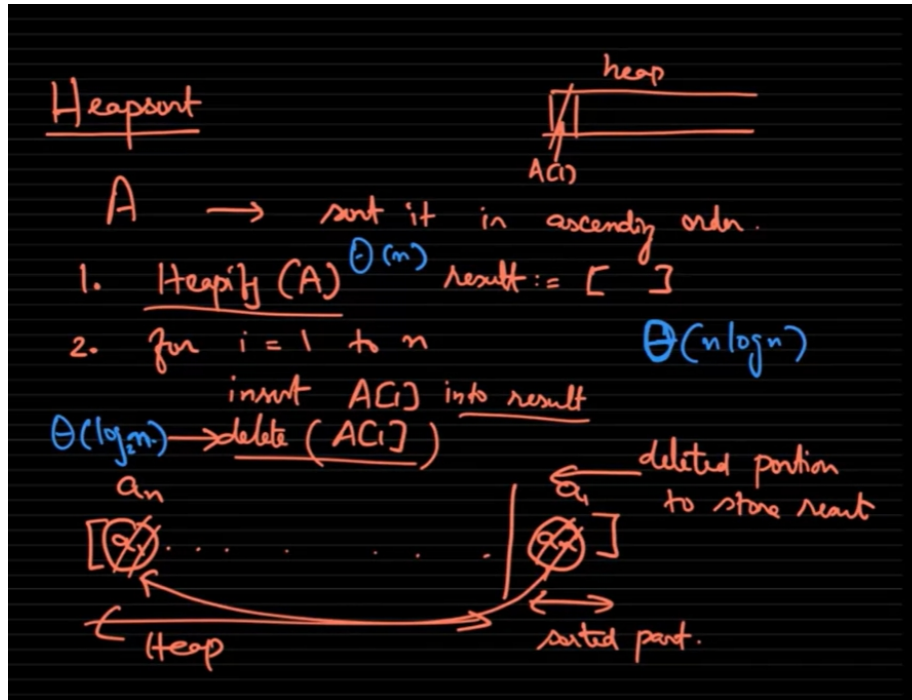 Heapsort
heap
A[1]
A → sort it in ascending order.
1. Heapify (A) Θ(n) result := [ ]
2. for i = 1 to n
Θ(n log n)
insert A[1] into result
Θ(log₂n) → delete (A[1])
← deleted portion
to store result
aₙ a₁
[ a₁ . . . . . . aₙ ]
Heap
sorted part.